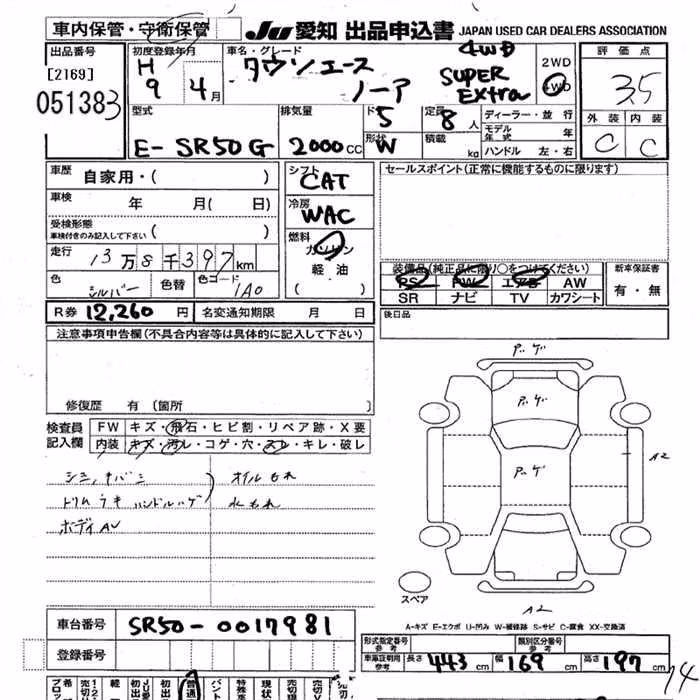 車内保管・守衛保管
JU 愛知 出品申込書 JAPAN USED CAR DEALERS ASSOCIATION
出品番号 初度登録年月 車名・グレード 4WD 2WD 評価点
[2169] H タウンエース SUPER 4WD 3.5
051383 9 4月 ノーア Extra
型式 排気量 ド 5 定員 8人 ディーラー・並行 外装 内装
E-SR50G 2000cc 形状 W 積載 kg モデル年式 年 C C
ハンドル 左・右
車歴 自家用・( ) シフト CAT セールスポイント(正常に機能するものに限ります)
車検 年 月( 日) 冷房 WAC
受検形態
車検付きのみ記入して下さい ( ) 燃料
走行 13万8千397km ガソリン
色 シルバー 色替 色コード 1A0 軽油
( )
装備品(純正品に限り○をつけてください) 新車保証書
PS PW エアB AW 有・無
SR ナビ TV カワシート
R券 12,260円 名変通知期限 月 日 後日品
注意事項申告欄(不具合内容等は具体的に記入して下さい)
修復歴 有 (箇所 )
検査員 FW キズ・飛石・ヒビ割・リペア跡・X要
記入欄 内装 キズ・汚レ・コゲ・穴・スレ・キレ・破レ
オイルもれ
水もれ
ボディAV
A2
スペア
A2
A-キズ E-エクボ U-凹み W-補修跡 S-サビ C-腐食 XX-交換済
車台番号 SR50-0017981
登録番号
形式指定番号 参考 類別区分番号 参考
車庫証明用 参考 長さ 443cm 幅 169cm 高さ 197cm